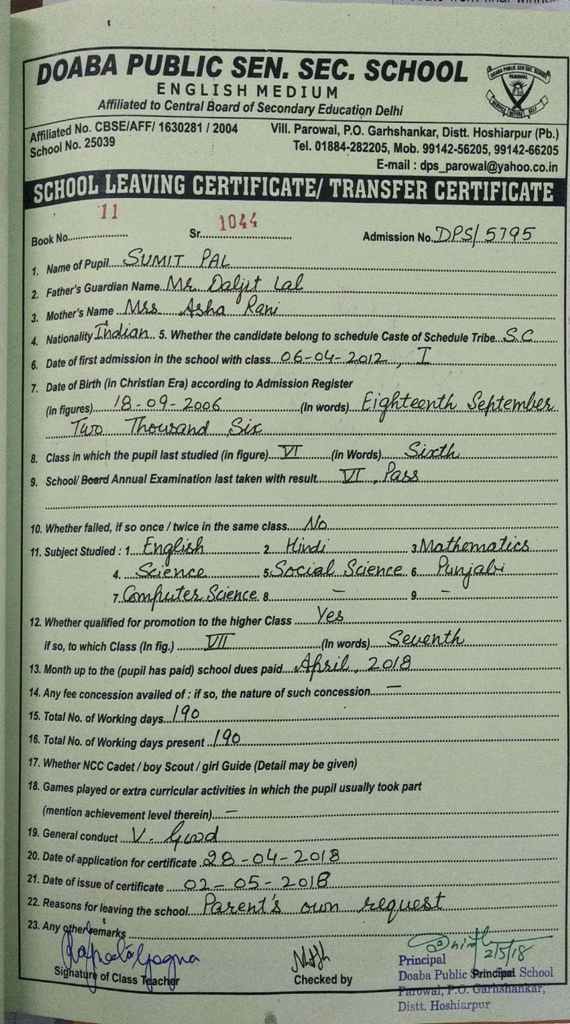 DOABA PUBLIC SEN. SEC. SCHOOL
ENGLISH MEDIUM
Affiliated to Central Board of Secondary Education Delhi
Affiliated No. CBSE/AFF/ 1630281 / 2004
School No. 25039
Vill. Parowal, P.O. Garhshankar, Distt. Hoshiarpur (Pb.)
Tel. 01884-282205, Mob. 99142-56205, 99142-66205
E-mail : dps_parowal@yahoo.co.in
SCHOOL LEAVING CERTIFICATE/ TRANSFER CERTIFICATE
Book No. 11 Sr. 1044 Admission No. DPS/5795
1. Name of Pupil SUMIT PAL
2. Father's Guardian Name Mr. Daljit Lal
3. Mother's Name Mrs Asha Rani
4. Nationality Indian 5. Whether the candidate belong to schedule Caste of Schedule Tribe S.C
6. Date of first admission in the school with class 06-04-2012, I
7. Date of Birth (in Christian Era) according to Admission Register
(in figures) 18-09-2006 (In words) Eighteenth September
Two Thousand Six
8. Class in which the pupil last studied (in figure) VI (In Words) Sixth
9. School/ Board Annual Examination last taken with result VI, Pass
10. Whether failed, if so once / twice in the same class No
11. Subject Studied : 1 English 2 Hindi 3 Mathematics
4. Science 5 Social Science 6 Punjabi
7. Computer Science 8 - 9 -
12. Whether qualified for promotion to the higher Class Yes
if so, to which Class (In fig.) VII (In words) Seventh
13. Month up to the (pupil has paid) school dues paid April, 2018
14. Any fee concession availed of : if so, the nature of such concession -
15. Total No. of Working days 190
16. Total No. of Working days present 190
17. Whether NCC Cadet / boy Scout / girl Guide (Detail may be given)
18. Games played or extra curricular activities in which the pupil usually took part
(mention achievement level therein) -
19. General conduct V. Good
20. Date of application for certificate 28-04-2018
21. Date of issue of certificate 02-05-2018
22. Reasons for leaving the school Parent's own request
23. Any other remarks
Signature of Class Teacher
Checked by
2/5/18
Principal
Doaba Public Principal School
Parowal, P.O. Garhshankar,
Distt. Hoshiarpur